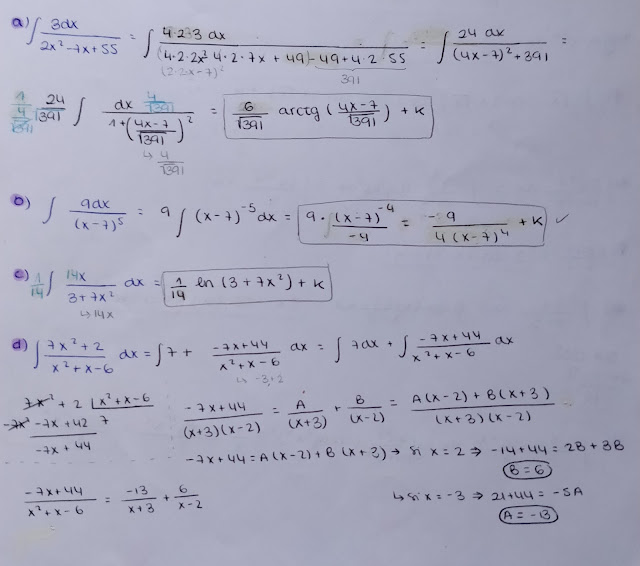 a) ∫ 3dx / 2x² -7x +55 = ∫ 4·2·3 dx / (4·2·2x² 4·2·7x + 49) -49 +4·2·55 = ∫ 24 dx / (4x-7)² + 391 =
(2·2x-7)² 391
1 / 4/√391 24/√391 ∫ dx 4/√391 / 1+(4x-7/√391)² = 6/√391 arctg (4x-7/√391) + K
↳ 4/√391
b) ∫ 9dx / (x-7)⁵ = 9 ∫ (x-7)⁻⁵ dx = 9· (x-7)⁻⁴ / -4 = -9 / 4(x-7)⁴ + K ✓
c) 1/14 ∫ 14x / 3+7x² dx = 1/14 ln (3+7x²) + K
↳ 14x
d) ∫ 7x²+2 / x²+x-6 dx = ∫ 7 + -7x+44 / x²+x-6 dx = ∫ 7dx + ∫ -7x+44 / x²+x-6 dx
↳ -3,+2
7x² + 2 | x²+x-6
-7x² -7x +42 7
-7x + 44
-7x+44 / (x+3)(x-2) = A / (x+3) + B / (x-2) = A(x-2) + B(x+3) / (x+3)(x-2)
-7x+44 = A(x-2) + B(x+3) → si x=2 → -14+44 = 2B + 3B
B=6
-7x+44 / x²+x-6 = -13 / x+3 + 6 / x-2
↳ si x = -3 ⇒ 21+44 = -5A
A=-13